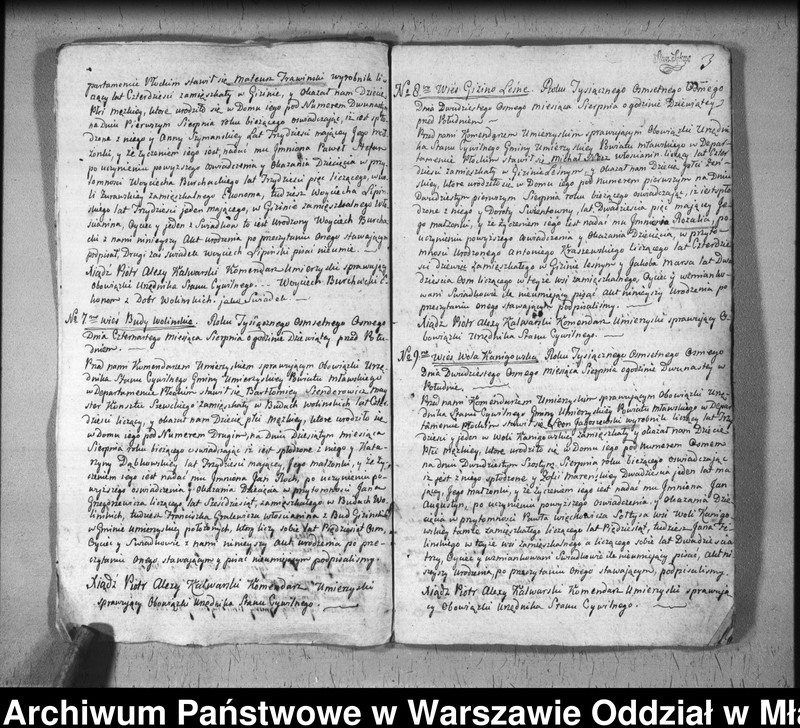 partamencie Płockim stawił się Mateusz Trawinski wyrobnik li-
czący lat Czterdziesci zamięszkały w Gizinie, y okazał nam Dziecię
Płci męzkiey, które urodziło się w Domu iego pod Numerem Dwunastym
na dniu Pierwszym Sierpnia roku bieżącego oswiadczaiąc, iż iest spło-
dzone z niego y Anny Szymanskiey Lat Trzydziesci maiącey Jego Mał-
żonki, y że życzeniem iego iest, nadać mu Jmniona Paweł Stefan
po uczynieniu powyższego oswiadczenia y Okazania Dziecięcia w przy-
tomnosci Woyciecha Burchackiego lat Trzydziesci pięć liczącego, w
li Zurawskiey zamięszkałego Ekonoma, tudziesz Woyciecha Lipin-
skiego lat Trzydziesci jeden maiącego, w Gizinie zamięszkałego wło-
scianina, Oyciec y jeden z Swiadkow to iest Urodzony Woyciech Burcha-
cki z nami ninieyszy Akt Urodzenia po przeczytaniu Onego stawaiącym
podpisał, Drugi zaś swiadek Woyciech Lipiński pisać nieumie.
Xiądz Piotr Alexy Kalwarski Komendarz Umierzyski sprawuiący
obowiązki Urzędnika Stanu Cywilnego... Woyciech Burchacki E-
konom z Dobr Wolinskich jako Swiadek
No 7my wieś Budy wolinskie. Roku Tysiącznego Osmsetnego Osmego
Dnia Czternastego miesiąca Sierpnia o godzinie Dziewiątey przed Połu-
dniem.
Przed nami Komendarzem Umierzyskim sprawuiącym Obowiązki Urzę-
dnika Stanu Cywilnego Gminy Umierzyskiey Powiatu Mławskiego
w Departamencie Płockim stawił się Bartłomiey Senderowicz may-
ster Kunsztu Szewckiego zamięszkały w Budach wolinskich lat Czter-
dziesci liczący, y okazał nam Dziecię płci męzkiey, które urodziło się
w Domu iego pod Numerem Drugim, na Dniu Dziesiątym miesiąca
Sierpnia roku bieżącego oswiadczaiąc iż iest spłodzone z niego, y Kata-
rzyny Dąbkowskiey lat Trzydziesci maiącey, Jego małżonki, y że ży-
czeniem iego iest nadać mu Jmniona Jan Roch, po uczynieniu po-
wyższego oswiadczenia y Okazania Dziecięcia w przytomnosci Jana
Grzegorzewicza liczącego lat Szesdziesiąt, zamięszkałego w Budach Wo-
linskich, tudziesz Franciszka Gomulewicza włoscianina z Bud Gizinskich
w Gminie umierzyskiey położonych, który liczy sobie lat Piędziesiąt Osm,
Oyciec y Swiadkowie z nami ninieyszy Akt urodzenia po prze-
czytaniu Onego stawaiącym y pisać nieumieiącym podpisaliśmy.
Xiądz Piotr Alexy Kalwarski Komendarz Umierzyski
sprawuiący Obowiązki Urzędnika Stanu Cywilnego.
3
No 8my Wieś Gizino Leśne. Roku Tysiącznego Osmsetnego Osmego
Dnia Dwudziestego Osmego miesiąca Sierpnia o godzinie Dziewiątey
przed Południem.
Przed nami Komendarzem Umierzyskim sprawuiącym Obowiązki Urzędni-
ka Stanu Cywilnego Gminy Umierzyskiey Powiatu mławskiego w Depar-
tamencie Płockim stawił się Michał włoscianin liczący lat Czter-
dziesci zamięszkały w Gizinie Leśnym, y okazał nam Dziecię płci Żeń-
skiey, które urodziło się w Domu iego pod Numerem pierwszym na Dniu
Dwudziestym pierwszym Sierpnia roku bieżącego oswiadczaiąc, iż iest spło-
dzone z niego y Doroty Swientowny, lat Dwadziescia pięć maiącey Je-
go małżonki, y że życzeniem iego iest nadać mu Jmnienia Rozalia, po
uczynieniu powyższego Oswiadczenia y Okazania Dziecięcia, w przyto-
mności Urodzonego Antoniego Kraszewskiego liczącego lat Czterdzie-
sci dziewięć zamięszkałego w Gizinie lesnym y Jakoba Marsa lat Dwa-
dziescia Osm liczącego w teyże wsi zamięszkałego, Oyciec y wzmianko-
wani Swiadkowie że nieumieią pisać, Akt ninieyszy Urodzenia po
przeczytaniu onego stawaiącym podpisaliśmy.
Xiądz Piotr Alexy Kalwarski Komendarz Umierzyski sprawuiący O-
bowiązki Urzędnika Stanu Cywilnego.
No 9my Wieś Wola Kanigowska Roku Tysiącznego Osmsetnego Osmego
Dnia Dwudziestego Osmego miesiąca Sierpnia o godzinie Dwunastey w
Południe.
Przed nami Komendarzem Umierzyskim sprawuiącym Obowiązki Urzę-
dnika Stanu Cywilnego Gminy Umierzyskiey Powiatu mławskiego w Depar-
tamencie Płockim stawił się Leon Jagoszewski wyrobnik liczący lat Trzy-
dziesci y jeden w Woli Kanigowskiey zamięszkały y okazał nam Dziecię
Płci Męzkiey, które urodziło się w Domu iego pod Numerem Osmem
na dniu Dwudziestym Szostym Sierpnia roku bieżącego oswiadczaiąc
iż iest z niego spłodzone y Zofii lat Dwadziescia jeden lat ma-
iącey, Jego małżonki, y że życzeniem iego iest nadać mu Jmniona Jan
Augustyn, po uczynieniu powyższego Oswiadczenia y Okazania Dzie-
cięcia w przytomnosci Pawła Szołtysa wsi Woli Kanigo-
wskiey tamże zamięszkałego liczącego lat Piędziesiąt, tudziesz Jana Ze-
linskiego w teyże wsi zamięszkałego a liczącego sobie lat Dwadziescia
trzy, Oyciec y wzmiankowani Swiadkowie że nieumieią pisać, Akt ni-
nieyszy Urodzenia, po przeczytaniu onego stawaiącym, podpisaliśmy.
Xiądz Piotr Alexy Kalwarski Komendarz Umierzyski sprawuią-
cy Obowiązki Urzędnika Stanu Cywilnego.
Archiwum Państwowe w Warszawie Oddział w Mła